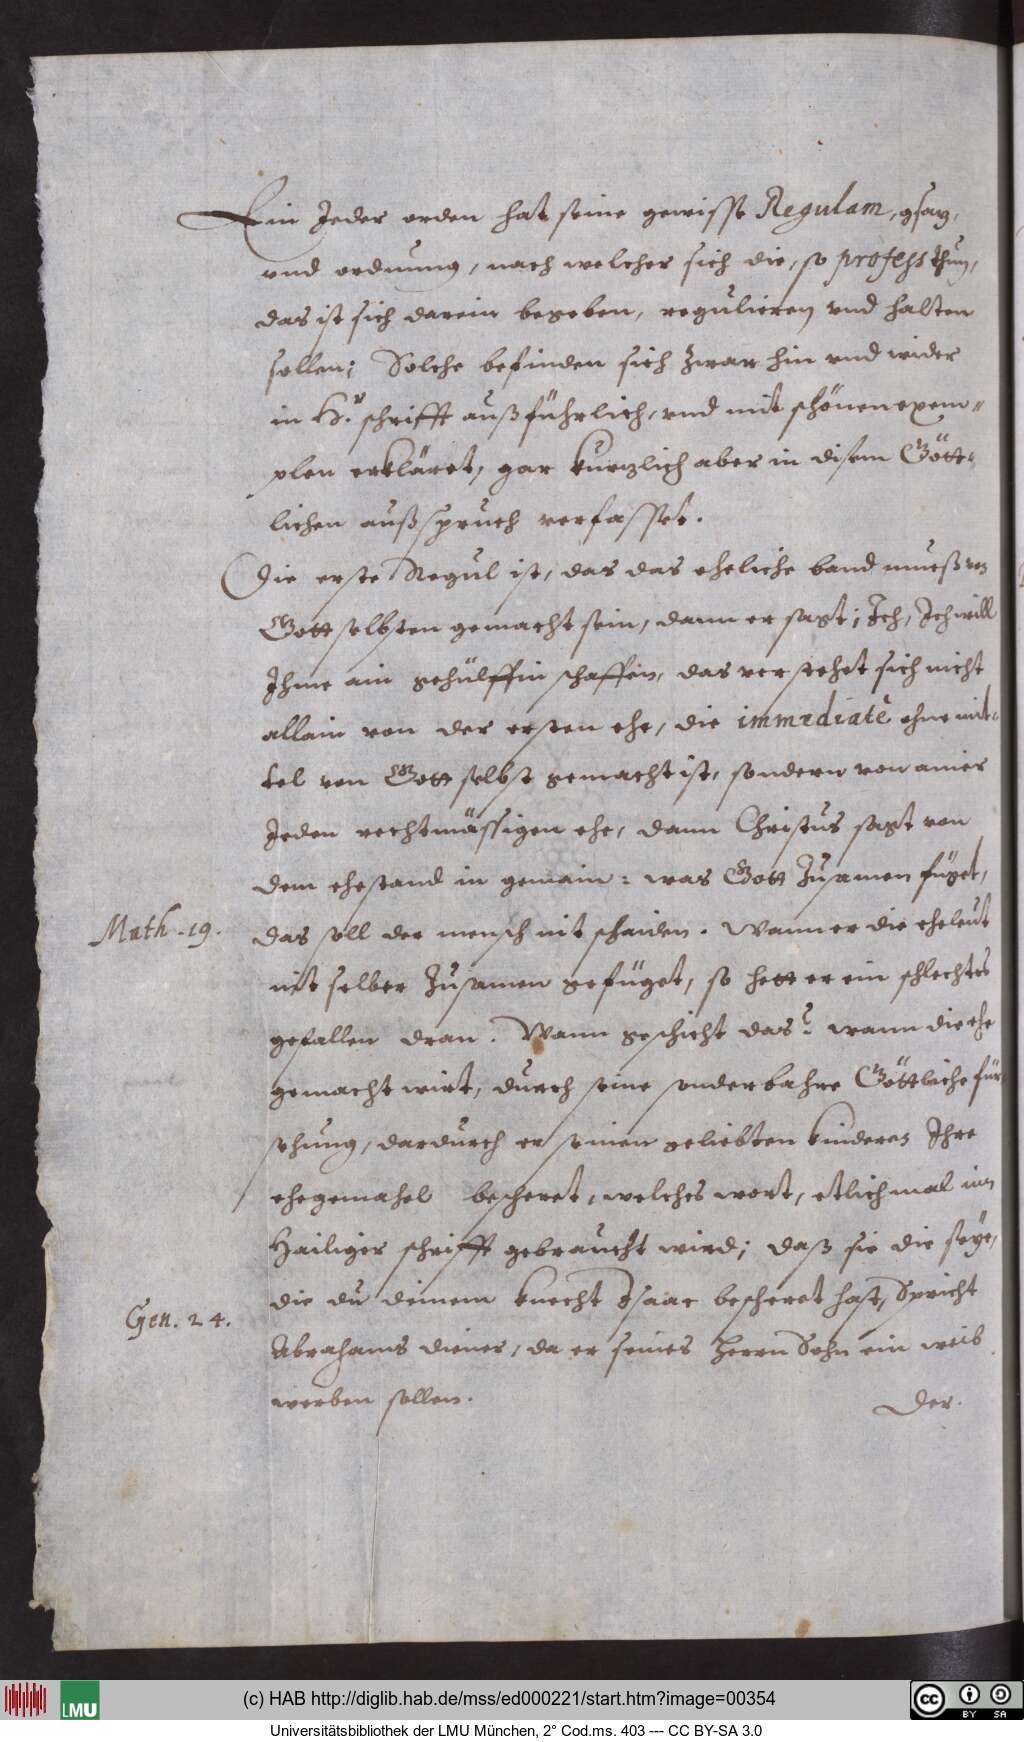 Ein Jeder orden hat seine gewisse Regulam, gsaz,
vnd ordnung, nach welcher sich die, so profess thun,
das ist sich darein begeben, regulieren vnd halten
sollen; Solche befinden sich zwar hin vnd wider
in H.r schrifft außführlich, vnd mit schönen exem=
plen erkläret, gar kurzlich aber in disem Gött=
lichen außspruch verfasset.
Die erste Regul ist, das das eheliche band mueß von
Gott selbsten gemacht sein, dann er sagt; Ich, Ich will
Ihme ain gehülffin schaffen, das verstehet sich nicht
allain von der ersten ehe, die immediatè ohne mit=
tel von Gott selbst gemacht ist, sondern von ainer
Jeden rechtmässigen ehe, dann Christus sagt von
dem ehestand in gemain: was Gott Zusamen füget,
Math. 19.
das soll der mensch nit schaiden. Wann er die eheleut
nit selber Zusamen gefüget, so hett er ein schlechtes
gefallen dran. Wann geschicht das? wann die ehe
gemacht wirt, durch seine sonderbahre Göttliche für
sehung, dardurch er seinen geliebten kinderen Ihre
ehegemahel bescheret, welches wort, etlich mal inn
Hailiger schrifft gebraucht wird; daß sie die seye,
die du deinem knecht Isaac bescheret hast, Spricht
Gen. 24.
Abrahams diener, da er seines Herrn Sohn ein weib
werben sollen.
Der.
(c) HAB http://diglib.hab.de/mss/ed000221/start.htm?image=00354
LMU
BY SA
Universitätsbibliothek der LMU München, 2° Cod.ms. 403 --- CC BY-SA 3.0